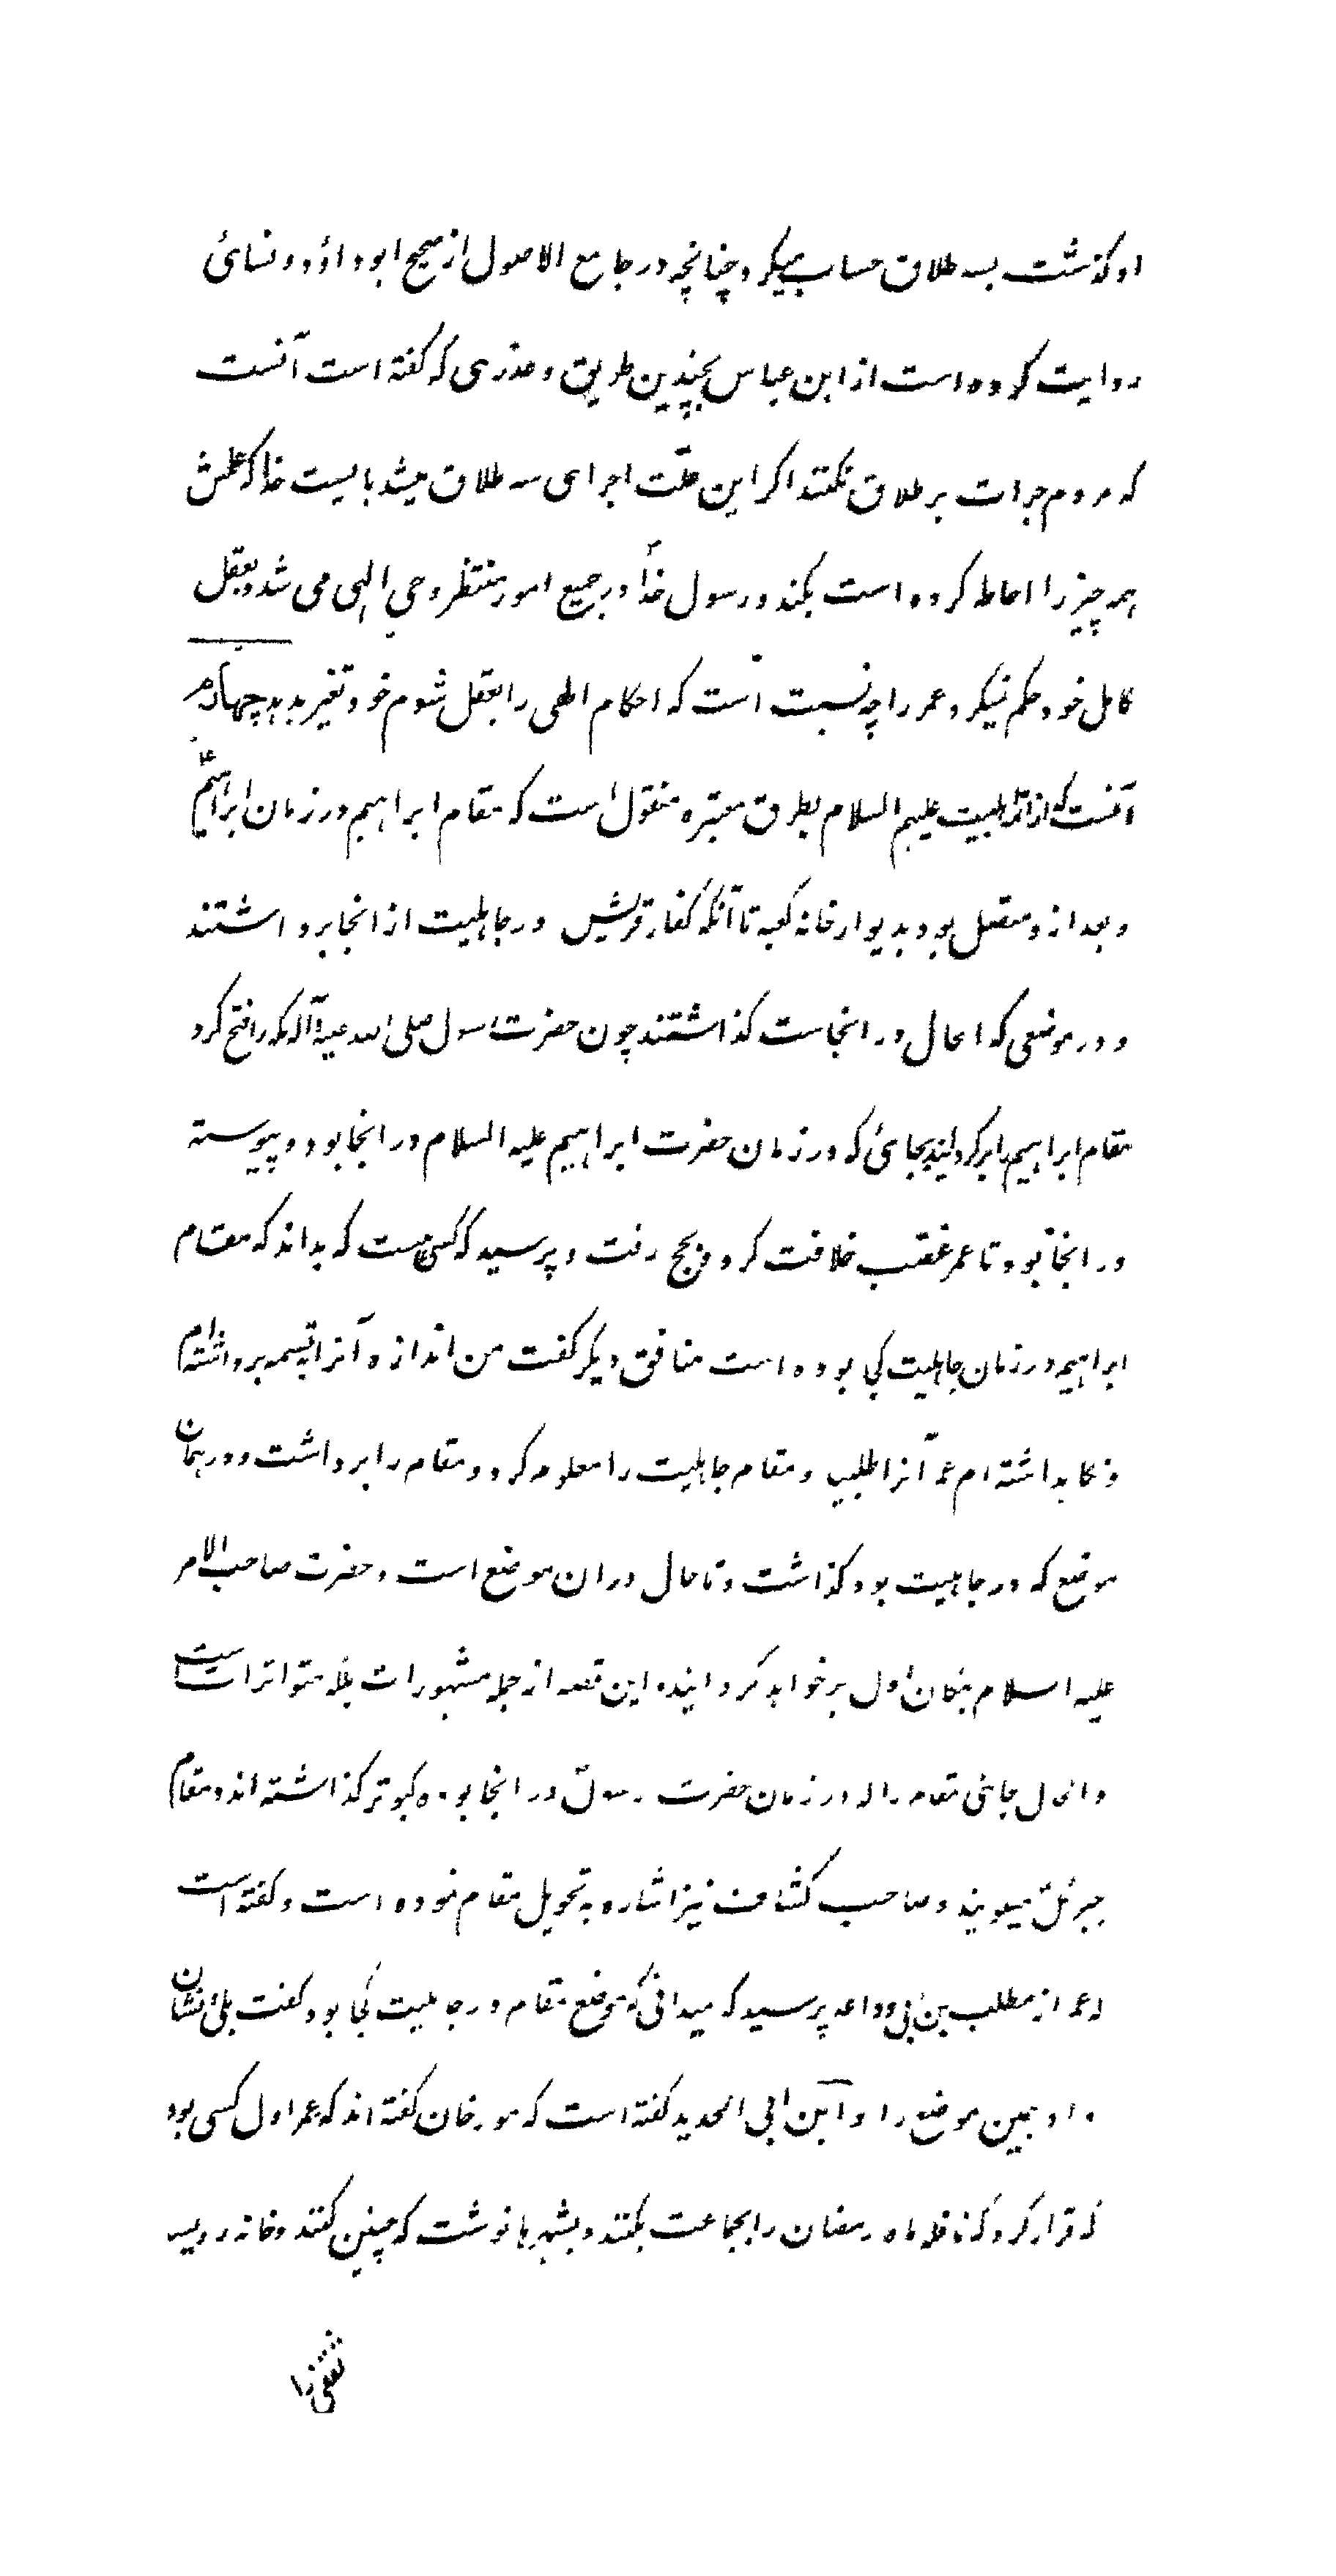 او گذشت بسه طلاق حساب میکرد چنانچه در جامع الاصول از صحیح ابو داؤد و نسائی
روایت کرده است از ابن عباس بچندین طریق و عذری که گفته است آنست
که مردم جرات بر طلاق نکنند اکر این علّت اجرای سه طلاق میشد بایست خدا که علمش
همه چیز را احاطه کرده است بکند و رسول خدا در جمیع امور منتظر وحی الهی می شد و بعقل
کامل خود حکم نمیکرد عمر را چه نسبت است که احکام الهی را بعقل شوم خود تغیر بدهد چهاردهم
آنست که از ائمه اهلبیت علیهم السلام بطرق معتبره منقول است که مقام ابراهیم در زمان ابراهیم ع
و بعد از و متصل بود بدیوار خانه کعبه تا آنکه کفار قریش در جاهلیت از انجا برداشتند
و در موضعی که الحال در انجاست گذاشتند چون حضرت رسول صلی الله علیه و آله مکه را فتح کرد
مقام ابراهیم را بر گردانید بجائی که در زمان حضرت ابراهیم علیه السلام در انجا بود و پیوسته
در انجا بود تا عمر غصب خلافت کرد و بحج رفت و پرسید که کسی هست که بداند که مقام
ابراهیم در زمان جاهلیت کجا بوده است منافق دیکر گفت من اندازه آنرا بتسمه برداشته ام
و نکا بداشته ام عمر آنرا طلبید و مقام جاهلیت را معلوم کرد و مقام را برداشت و در همان
موضع که در جاهلیت بود گذاشت و تا حال در ان موضع است و حضرت صاحب الامر
علیه السلام بمکان اول بر خواهد گردانید و این قصه از جمله مشهورات بلکه متواترات است
و الحال جائی مقام را که در زمان حضرت رسول در انجا بوده کبوتر گذاشته اند و مقام
جبرئیل میگویند و صاحب کشاف نیز اشاره به تحویل مقام نموده است و گفته است
که عمر از مطلب بن ابی وداعه پرسید که میدانی که موضع مقام در جاهلیت کجا بود گفت بلی نشان
داد همین موضع را و ابن ابی الحدید گفته است که مورخان گفته اند که عمر اول کسی بود
که قرار کرد که نافله ماه رمضان را بجماعت بکنند و بشهرها نوشت که چنین کنند و خانه رویشد
ثقفی را